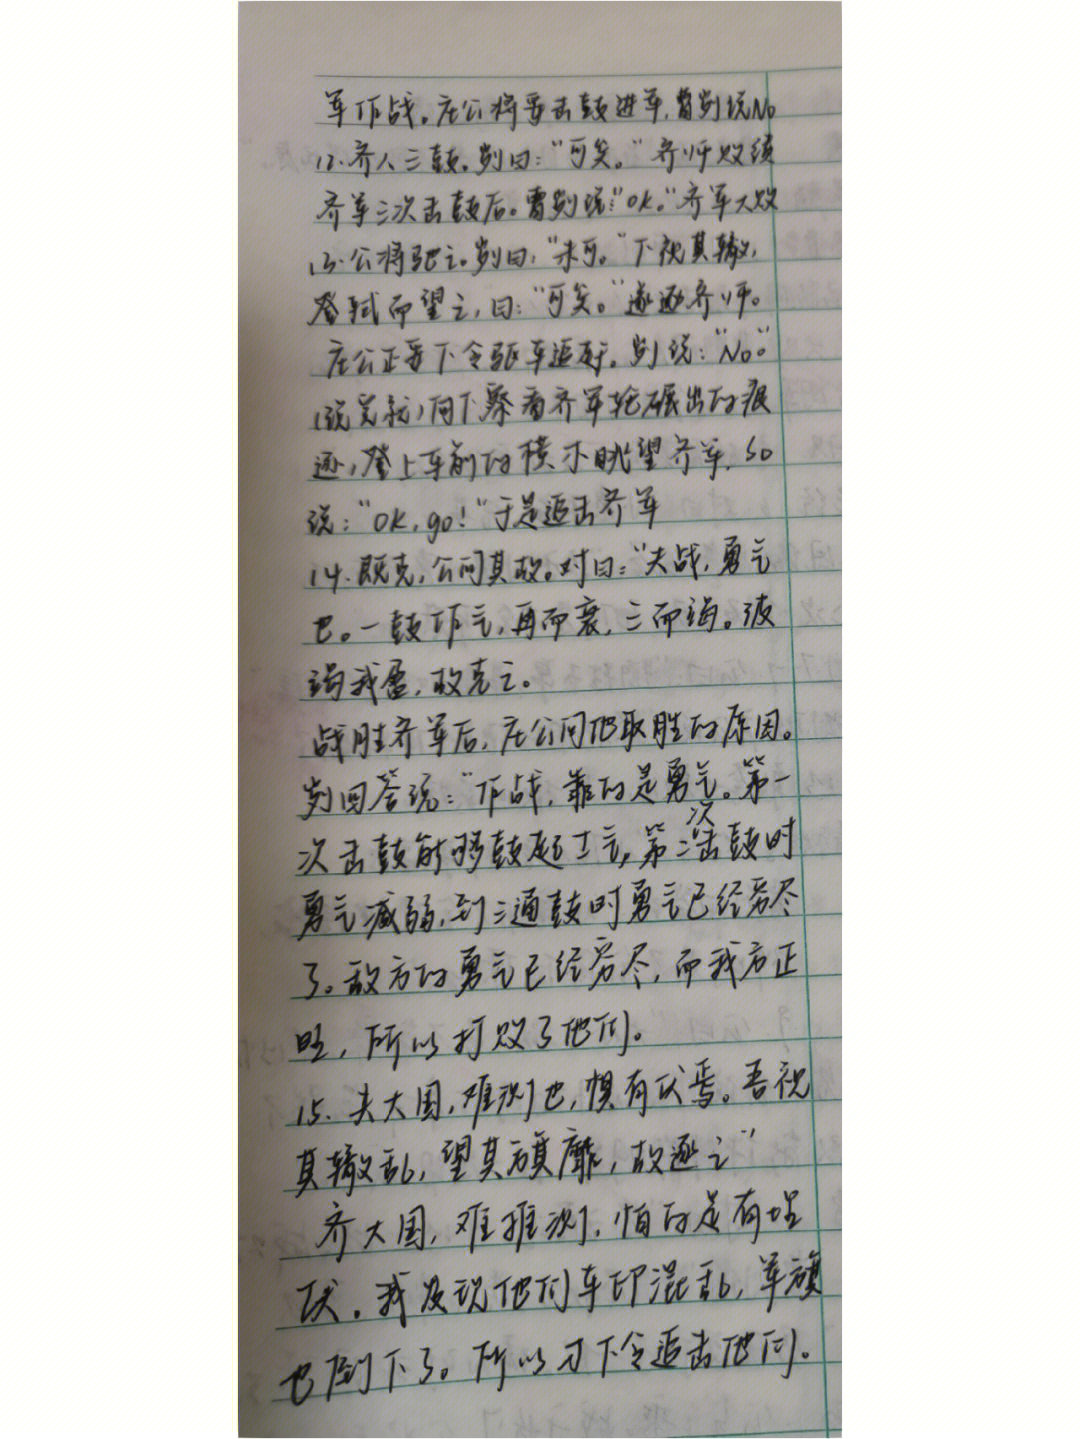 军作战。庄公将要击鼓进军,曹刿说No
12.齐人三鼓。刿曰:“可矣。”齐师败绩
齐军三次击鼓后。曹刿说:“ok。”齐军大败
13.公将驰之。刿曰,“未可。”下视其辙,
登轼而望之,曰:“可矣。”遂逐齐师。
庄公正要下令驱车追。刿说:“No。”
(说完就)向下察看齐军轮碾出的痕
迹,登上车前的横木眺望齐军,so
说:“ok,go!”于是追击齐军
14.既克,公问其故。对曰:“夫战,勇气
也。一鼓作气,再而衰,三而竭。彼
竭我盈,故克之。
战胜齐军后,庄公问他取胜的原因。
刿回答说:“作战,靠的是勇气。第一
次击鼓能够鼓起士气,第二次击鼓时
勇气减弱,到三通鼓时勇气已经穷尽
了。敌方的勇气已经穷尽,而我方正
旺,所以打败了他们。
15.夫大国,难测也,惧有伏焉。吾视
其辙乱,望其旗靡,故逐之”
齐大国,难推测,怕的是有埋
伏。我发现他们车印混乱,军旗
也倒下了。所以才下令追击他们。